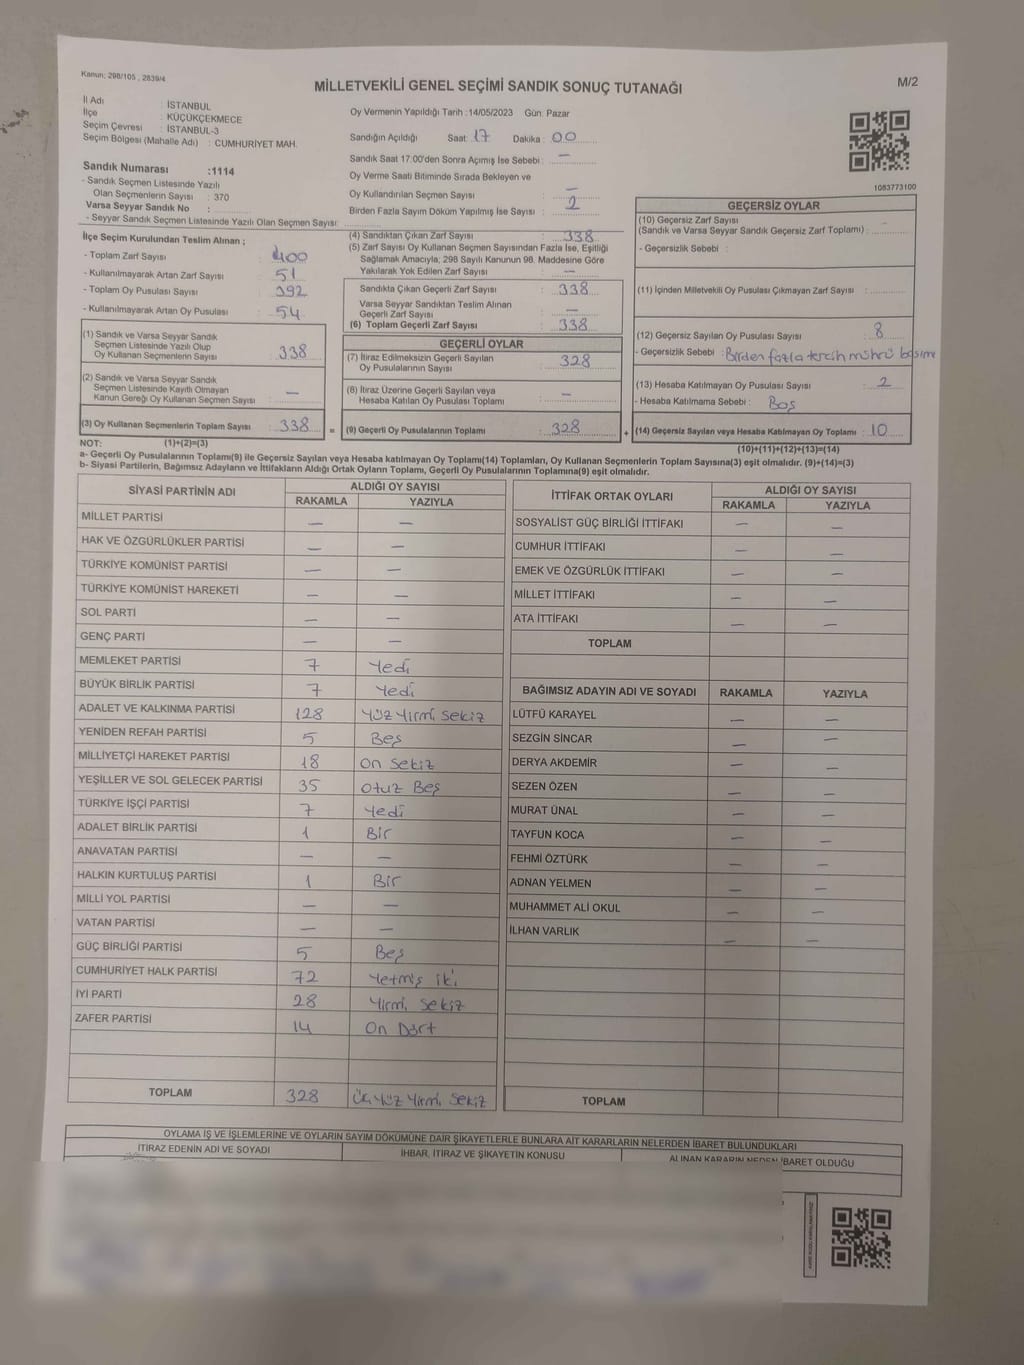 Kanun; 298/105 , 2839/4
MİLLETVEKİLİ GENEL SEÇİMİ SANDIK SONUÇ TUTANAĞI
M/2
İl Adı : İSTANBUL
İlçe : KÜÇÜKÇEKMECE
Seçim Çevresi : İSTANBUL-3
Seçim Bölgesi (Mahalle Adı) : CUMHURİYET MAH.
Sandık Numarası :1114
- Sandık Seçmen Listesinde Yazılı
Olan Seçmenlerin Sayısı : 370
Varsa Seyyar Sandık No :
- Seyyar Sandık Seçmen Listesinde Yazılı Olan Seçmen Sayısı:
Oy Vermenin Yapıldığı Tarih :14/05/2023 Gün: Pazar
Sandığın Açıldığı Saat: 17 Dakika : 00
Sandık Saat 17:00'den Sonra Açımış İse Sebebi : —
Oy Verme Saati Bitiminde Sırada Bekleyen ve
Oy Kullandırılan Seçmen Sayısı : —
Birden Fazla Sayım Döküm Yapılmış İse Sayısı : 2
1083773100
İlçe Seçim Kurulundan Teslim Alınan ;
- Toplam Zarf Sayısı : 400
- Kullanılmayarak Artan Zarf Sayısı : 51
- Toplam Oy Pusulası Sayısı : 392
- Kullanılmayarak Artan Oy Pusulası : 54
(1) Sandık ve Varsa Seyyar Sandık
Seçmen Listesinde Yazılı Olup
Oy Kullanan Seçmenlerin Sayısı : 338
(2) Sandık ve Varsa Seyyar Sandık
Seçmen Listesinde Kayıtlı Olmayan
Kanun Gereği Oy Kullanan Seçmen Sayısı : —
(3) Oy Kullanan Seçmenlerin Toplam Sayısı : 338 =
(4) Sandıktan Çıkan Zarf Sayısı : 338
(5) Zarf Sayısı Oy Kullanan Seçmen Sayısından Fazla İse, Eşitliği
Sağlamak Amacıyla; 298 Sayılı Kanunun 98. Maddesine Göre
Yakılarak Yok Edilen Zarf Sayısı : —
Sandıkta Çıkan Geçerli Zarf Sayısı : 338
Varsa Seyyar Sandıktan Teslim Alınan
Geçerli Zarf Sayısı : —
(6) Toplam Geçerli Zarf Sayısı : 338
GEÇERLİ OYLAR
(7) İtiraz Edilmeksizin Geçerli Sayılan
Oy Pusulalarının Sayısı : 328
(8) İtiraz Üzerine Geçerli Sayılan veya
Hesaba Katılan Oy Pusulası Toplamı : —
(9) Geçerli Oy Pusulalarının Toplamı : 328 +
GEÇERSİZ OYLAR
(10) Geçersiz Zarf Sayısı
(Sandık ve Varsa Seyyar Sandık Geçersiz Zarf Toplamı) :
- Geçersizlik Sebebi :
(11) İçinden Milletvekili Oy Pusulası Çıkmayan Zarf Sayısı :
(12) Geçersiz Sayılan Oy Pusulası Sayısı : 8
- Geçersizlik Sebebi : Birden fazla tercih mührü basımı
(13) Hesaba Katılmayan Oy Pusulası Sayısı : 2
- Hesaba Katılmama Sebebi : Boş
(14) Geçersiz Sayılan veya Hesaba Katılmayan Oy Toplamı : 10
NOT: (1)+(2)=(3)
(10)+(11)+(12)+(13)=(14)
a- Geçerli Oy Pusulalarının Toplamı(9) ile Geçersiz Sayılan veya Hesaba katılmayan Oy Toplamı(14) Toplamları, Oy Kullanan Seçmenlerin Toplam Sayısına(3) eşit olmalıdır. (9)+(14)=(3)
b- Siyasi Partilerin, Bağımsız Adayların ve İttifakların Aldığı Ortak Oyların Toplamı, Geçerli Oy Pusulalarının Toplamına(9) eşit olmalıdır.
SİYASİ PARTİNİN ADI ALDIĞI OY SAYISI
RAKAMLA YAZIYLA
MİLLET PARTİSİ — —
HAK VE ÖZGÜRLÜKLER PARTİSİ — —
TÜRKİYE KOMÜNİST PARTİSİ — —
TÜRKİYE KOMÜNİST HAREKETİ — —
SOL PARTİ — —
GENÇ PARTİ — —
MEMLEKET PARTİSİ 7 Yedi
BÜYÜK BİRLİK PARTİSİ 7 Yedi
ADALET VE KALKINMA PARTİSİ 128 Yüz Yirmi Sekiz
YENİDEN REFAH PARTİSİ 5 Beş
MİLLİYETÇİ HAREKET PARTİSİ 18 On Sekiz
YEŞİLLER VE SOL GELECEK PARTİSİ 35 Otuz Beş
TÜRKİYE İŞÇİ PARTİSİ 7 Yedi
ADALET BİRLİK PARTİSİ 1 Bir
ANAVATAN PARTİSİ — —
HALKIN KURTULUŞ PARTİSİ 1 Bir
MİLLİ YOL PARTİSİ — —
VATAN PARTİSİ — —
GÜÇ BİRLİĞİ PARTİSİ 5 Beş
CUMHURİYET HALK PARTİSİ 72 Yetmiş iki
İYİ PARTİ 28 Yirmi Sekiz
ZAFER PARTİSİ 14 On Dört
TOPLAM 328 Üç Yüz Yirmi Sekiz
İTTİFAK ORTAK OYLARI ALDIĞI OY SAYISI
RAKAMLA YAZIYLA
SOSYALİST GÜÇ BİRLİĞİ İTTİFAKI — —
CUMHUR İTTİFAKI — —
EMEK VE ÖZGÜRLÜK İTTİFAKI — —
MİLLET İTTİFAKI — —
ATA İTTİFAKI — —
TOPLAM
BAĞIMSIZ ADAYIN ADI VE SOYADI RAKAMLA YAZIYLA
LÜTFÜ KARAYEL — —
SEZGİN SİNCAR — —
DERYA AKDEMİR — —
SEZEN ÖZEN — —
MURAT ÜNAL — —
TAYFUN KOCA — —
FEHMİ ÖZTÜRK — —
ADNAN YELMEN — —
MUHAMMET ALİ OKUL — —
İLHAN VARLIK — —
TOPLAM
OYLAMA İŞ VE İŞLEMLERİNE VE OYLARIN SAYIM DÖKÜMÜNE DAİR ŞİKAYETLERLE BUNLARA AİT KARARLARIN NELERDEN İBARET BULUNDUKLARI
İTİRAZ EDENİN ADI VE SOYADI İHBAR, İTİRAZ VE ŞİKAYETİN KONUSU ALINAN KARARIN NEDEN İBARET OLDUĞU